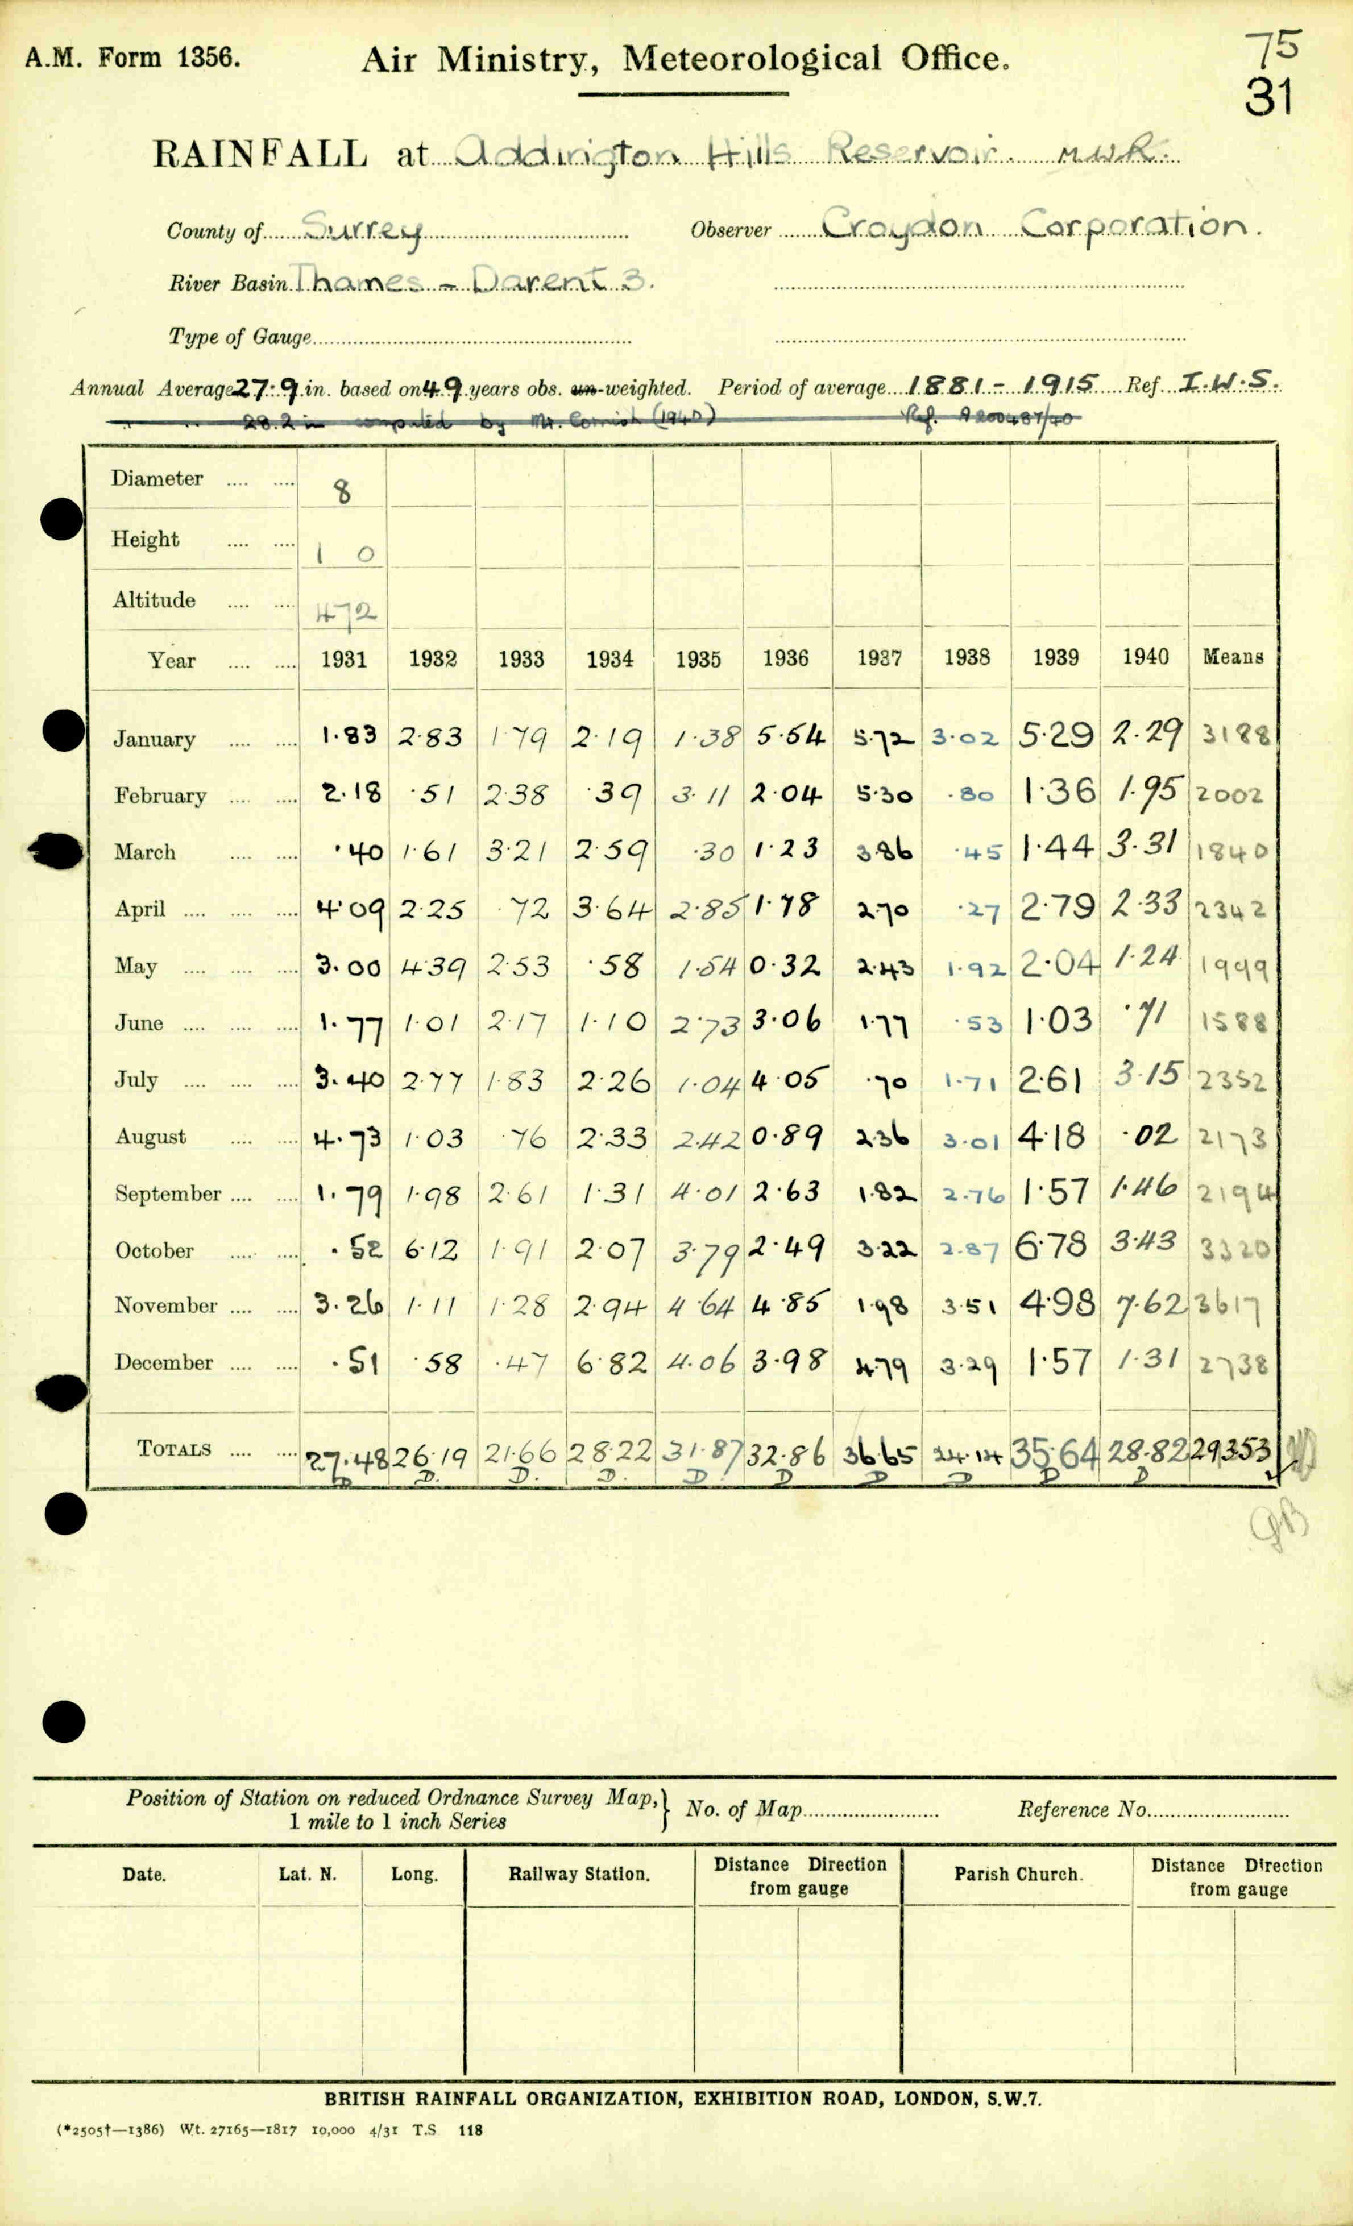 A.M. Form 1356. Air Ministry, Meteorological Office. 75
31
RAINFALL at Addington Hills Reservoir. M.W.R.
County of Surrey Observer Croydon Corporation.
River Basin Thames - Darent 3.
Type of Gauge
Annual Average 27.9 in. based on 49 years obs. un-weighted. Period of average 1881 - 1915 Ref. I.W.S.
" " 28.2 in computed by Mr. Cornish (1940) Ref. A200487/40
Diameter .... .... 8
Height .... .... 1 0
Altitude .... .... 472
Year .... .... 1931 1932 1933 1934 1935 1936 1937 1938 1939 1940 Means
January .... .... 1.83 2.83 1.79 2.19 1.38 5.54 5.72 3.02 5.29 2.29 3188
February .... .... 2.18 .51 2.38 .39 3.11 2.04 5.30 .80 1.36 1.95 2002
March .... .... .40 1.61 3.21 2.59 .30 1.23 3.86 .45 1.44 3.31 1840
April .... .... .... 4.09 2.25 .72 3.64 2.85 1.78 2.70 .27 2.79 2.33 2342
May .... .... .... 3.00 4.39 2.53 .58 1.54 0.32 2.43 1.92 2.04 1.24 1999
June .... .... .... 1.77 1.01 2.17 1.10 2.73 3.06 1.77 .53 1.03 .71 1588
July .... .... .... 3.40 2.77 1.83 2.26 1.04 4.05 .70 1.71 2.61 3.15 2352
August .... .... 4.73 1.03 .76 2.33 2.42 0.89 2.36 3.01 4.18 .02 2173
September .... .... 1.79 1.98 2.61 1.31 4.01 2.63 1.82 2.76 1.57 1.46 2194
October .... .... .52 6.12 1.91 2.07 3.79 2.49 3.22 2.87 6.78 3.43 3320
November .... .... 3.26 1.11 1.28 2.94 4.64 4.85 1.98 3.51 4.98 7.62 3617
December .... .... .51 .58 .47 6.82 4.06 3.98 4.79 3.29 1.57 1.31 2738
TOTALS .... .... 27.48 26.19 21.66 28.22 31.87 32.86 36.65 24.14 35.64 28.82 29353
D D. D. D. D D D D D D
GB
Position of Station on reduced Ordnance Survey Map, No. of Map Reference No.
1 mile to 1 inch Series
Date. Lat. N. Long. Railway Station. Distance Direction Parish Church. Distance Direction
from gauge from gauge
BRITISH RAINFALL ORGANIZATION, EXHIBITION ROAD, LONDON, S.W.7.
(*2505†—1386) Wt. 27165—1817 10,000 4/31 T.S 118